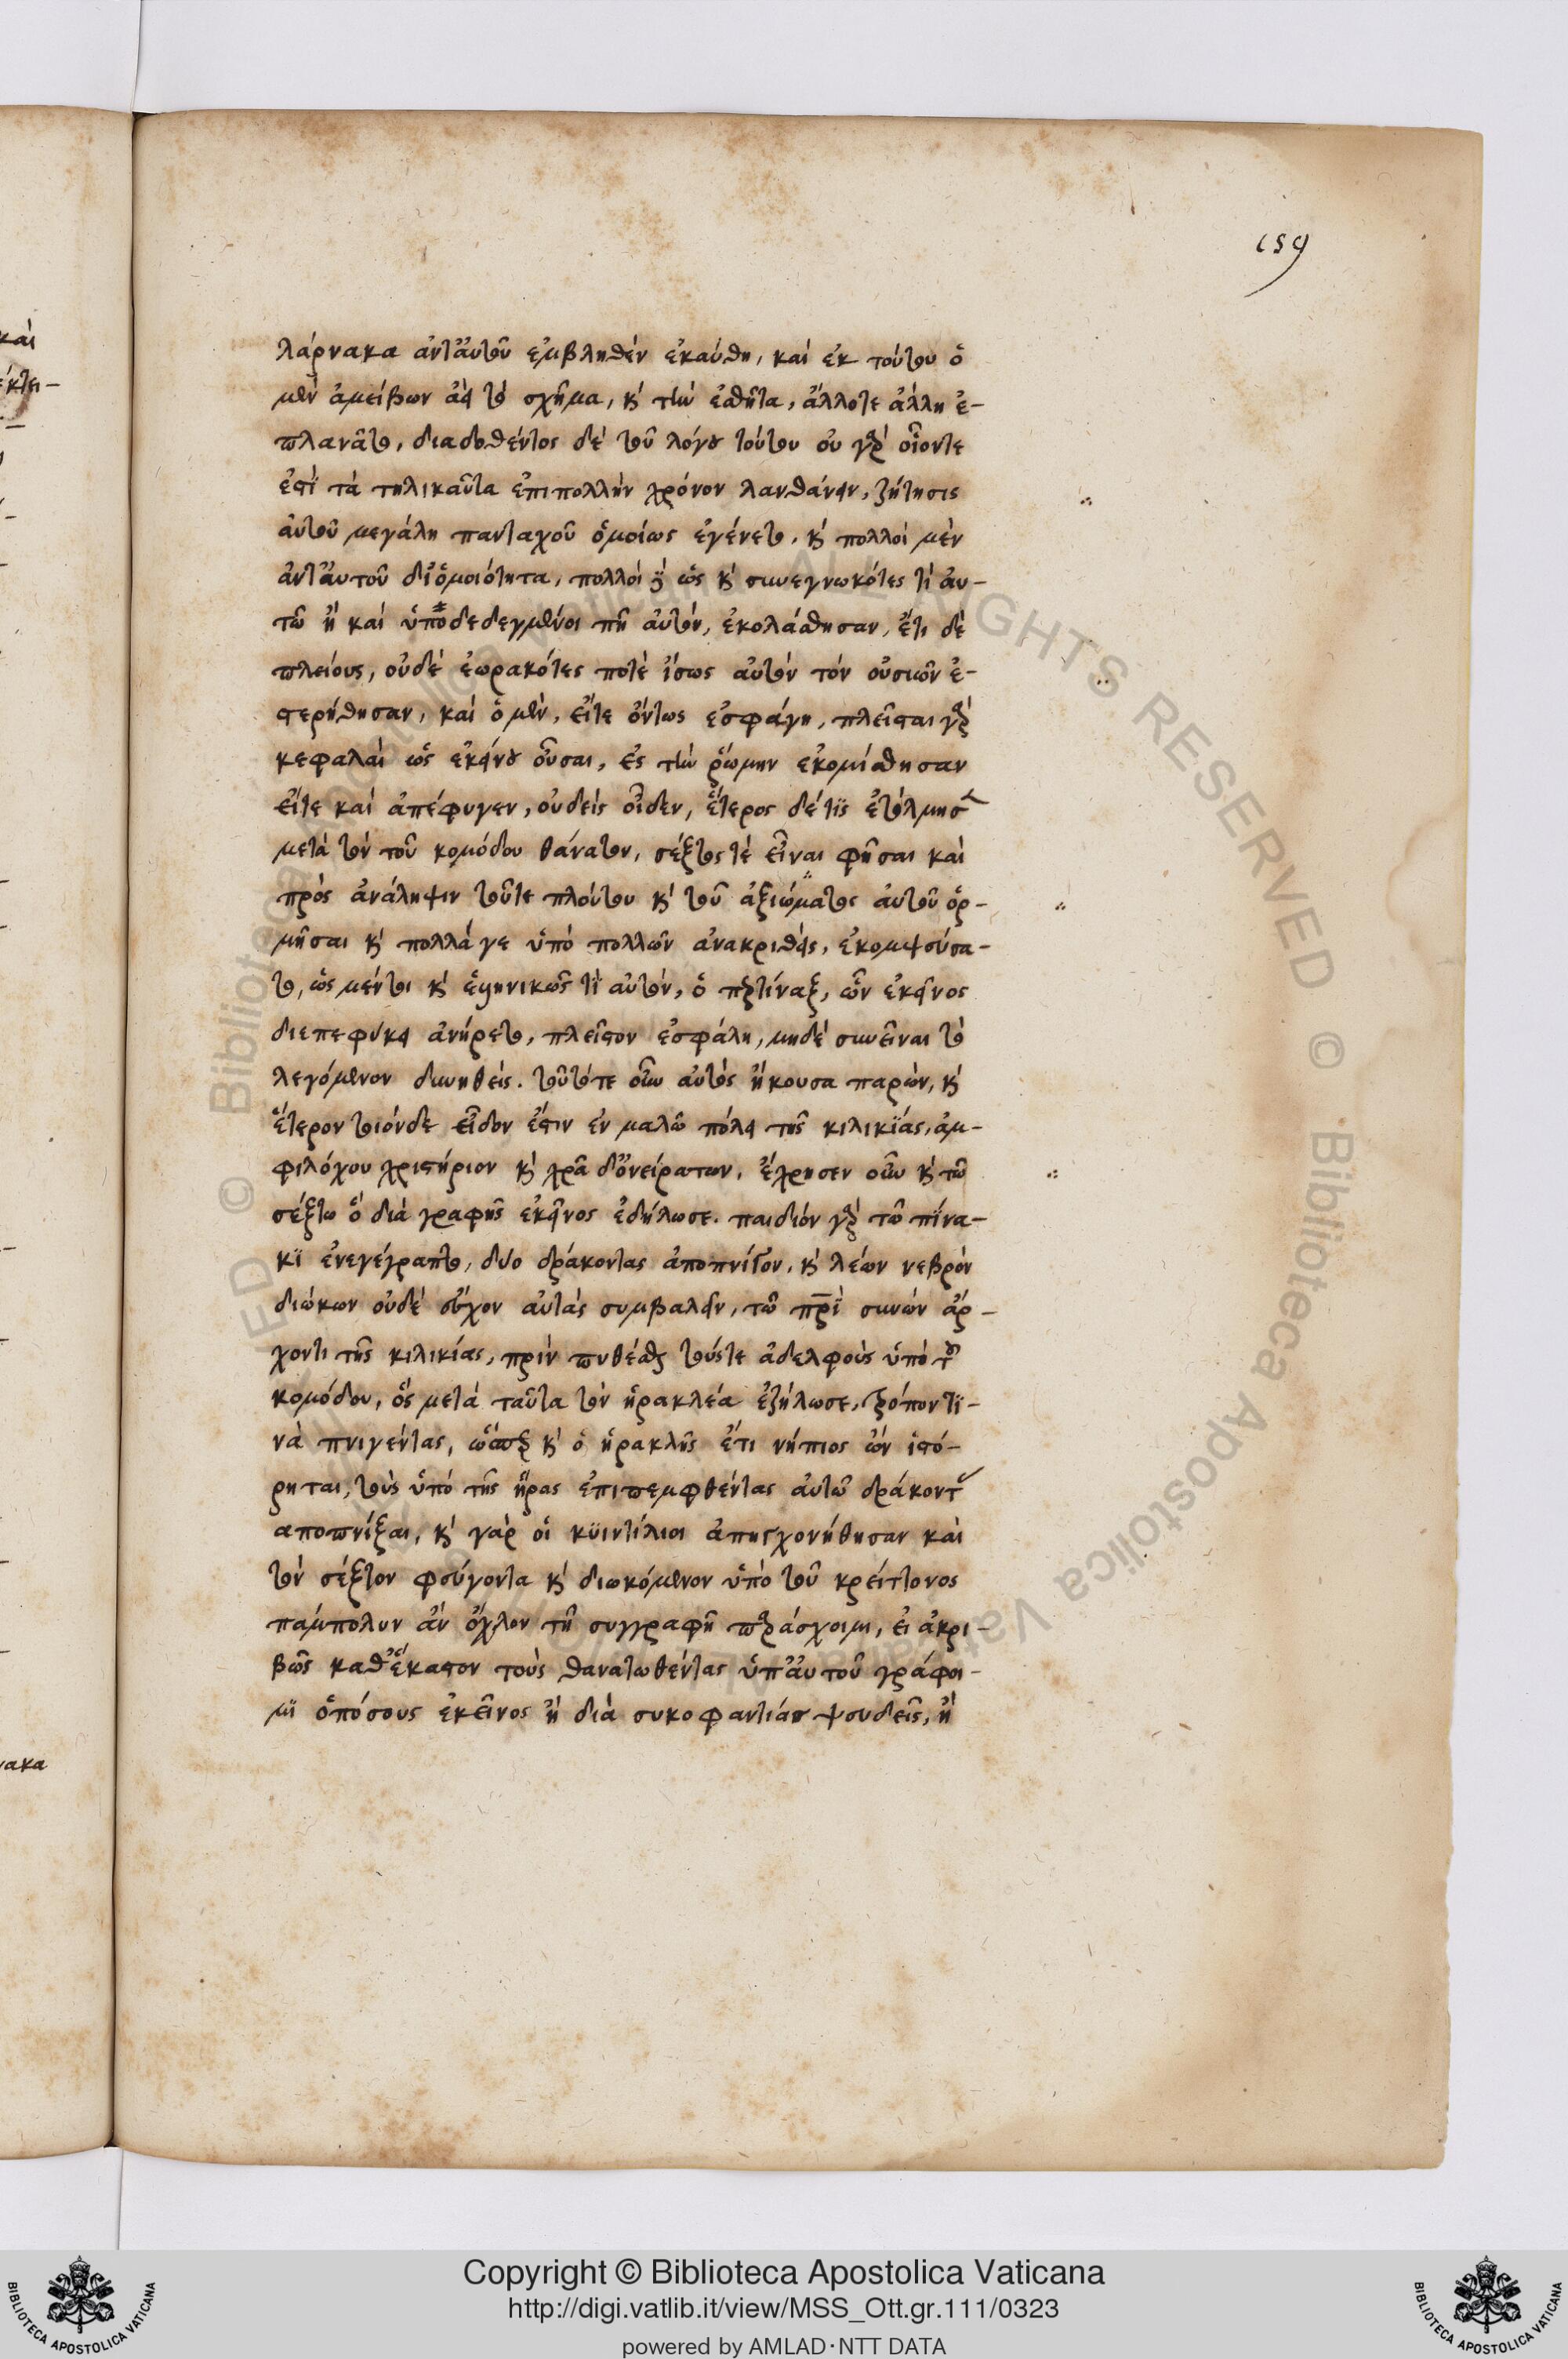 159
λάρνακα ἀντ' αὐτοῦ ἐμβληθὲν ἐκαύθη, καὶ ἐκ τούτου ὁ
μὲν ἀμείβων ἀεὶ τὸ σχῆμα, κ τὴν ἐσθῆτα, ἄλλοτε ἄλλη ἐ-
πλανᾶτο, διαδοθέντος δὲ τοῦ λόγου τούτου οὐ γὰρ οἷόντε
ἐστὶ τὰ τηλικαῦτα ἐπιπολλὴν χρόνον λανθάνειν, ζήτησις
αὐτοῦ μεγάλη πανταχοῦ ὁμοίως ἐγένετο, κ πολλοὶ μὲν
ἀντ' αυτοῦ δι' ὁμοιότητα, πολλοὶ δὲ ὡς κ συνεγνωκότες τὶ αυ-
τῶ ἢ καὶ ὑποδεδεγμένοι πῆ αὐτὸν, ἐκολάσθησαν, ἔτι δὲ
πλείους, οὐδὲ ἑωρακότες ποτὲ ἴσως αὐτὸν τὸν οὐσιῶν ἐ-
στερήθησαν, καὶ ὁ μὲν, εἴτε ὄντως ἐσφάγη, πλεῖσται γὰρ
κεφαλαὶ ὡς ἐκείνου οὖσαι, ἐς τὴν ῥώμην ἐκομίσθησαν
εἴτε καὶ ἀπέφυγεν, οὐδεὶς οἶδεν, ἕτερος δέ τις ἐτόλμησε
μετὰ τὸν τοῦ κομόδου θάνατον, σέξτος τὲ εἶναι φῆσαι καὶ
πρὸς ἀνάληψιν τοῦτε πλούτου κ τοῦ ἀξιώματος αὐτοῦ ὁρ-
μῆσαι κ πολλά γε ὑπὸ πολλῶν ἀνακριθεὶς, ἐκομψεύσα-
το, ὡς μέντοι κ ἑλληνικῶς τὶ αὐτὸν, ὁ περτίναξ, ὧν ἐκεῖνος
διεπεφύκει ἀνήρετο, πλεῖστον ἐσφάλη, μηδὲ συνεῖναι τὸ
λεγόμενον δυνηθείς. τοῦτότε οὖν αὐτὸς ἤκουσα παρὼν, κ
ἕτερον τοιόνδε εἶδον ἔστιν ἐν μαλῶ πόλει τῆς κιλικίας, ἀμ-
φιλόχου χρηστήριον κ χρᾶ δ' ὀνείρατων, ἔχρησεν οὖν κ τῶ
σέξτω ὃ διὰ γραφῆς ἐκεῖνος ἐδήλωσε. παιδίον γὰρ τῶ πίνα-
κι ἐνεγέγραπτο, δύο δράκοντας ἀποπνίγον, κ λέων νεβρὸν
διώκων οὐδὲ ἔσχον αὐτὰς συμβαλεῖν, τῶ πρὶ συνὼν ἄρ-
χοντι τῆς κιλικίας, πρὶν πυθέσθαι τούστε ἀδελφοὺς ὑπὸ τοῦ
κομόδου, ὃς μετὰ ταῦτα τὸν ἡρακλέα ἐζήλωσε, τρόπον τϊ-
νὰ πνιγέντας, ὥσπερ κ ὁ ἡρακλῆς ἔτι νήπιος ὢν ἱστό-
ρηται, τοὺς ὑπὸ τῆς ἥρας ἐπιπεμφθέντας αὐτῶ δράκοντας
αποπνίξαι, κ γὰρ οἱ κϋιντίλιοι ἀπηγχονήθησαν καὶ
τὸν σέξτον φεύγοντα κ διωκόμενον ὑπὸ τοῦ κρείττονος
παμπολυν ἂν ὄχλον τῆ συγγραφῆ παράσχοιμι, εἰ ἀκρι-
βῶς καθ' ἕκαστον τοὺς θανατωθέντας ὑπ' αυτοῦ γράφοι-
μϊ ὁπόσους ἐκεῖνος ἢ διὰ συκοφαντίας ψευδεῖς, ἢ
Copyright © Biblioteca Apostolica Vaticana
http://digi.vatlib.it/view/MSS_Ott.gr.111/0323
powered by AMLAD·NTT DATA